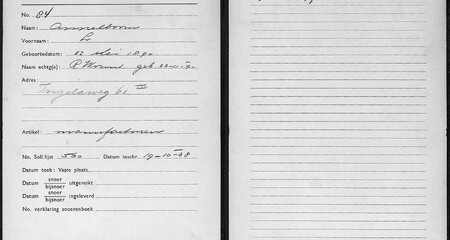 No. 84
Naam:
Voornaam: L
Geboortedatum: 22 Mei 1890
Naam echtg(e): R geb 22-11-90
Adres:
61 III
Artikel: manufacturen
No. Soll.lijst 560 Datum inschr. 19-10-38
Datum toek: Vaste plaats
Datum snoer/bijsnoer uitgereikt
Datum snoer/bijsnoer ingeleverd
No. verklaring snoerenboek